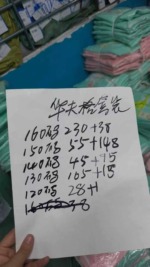 华夫格笃裝
160码 230+38
150码 55+148
140码 45+75
130码 105+18
120码 28+1